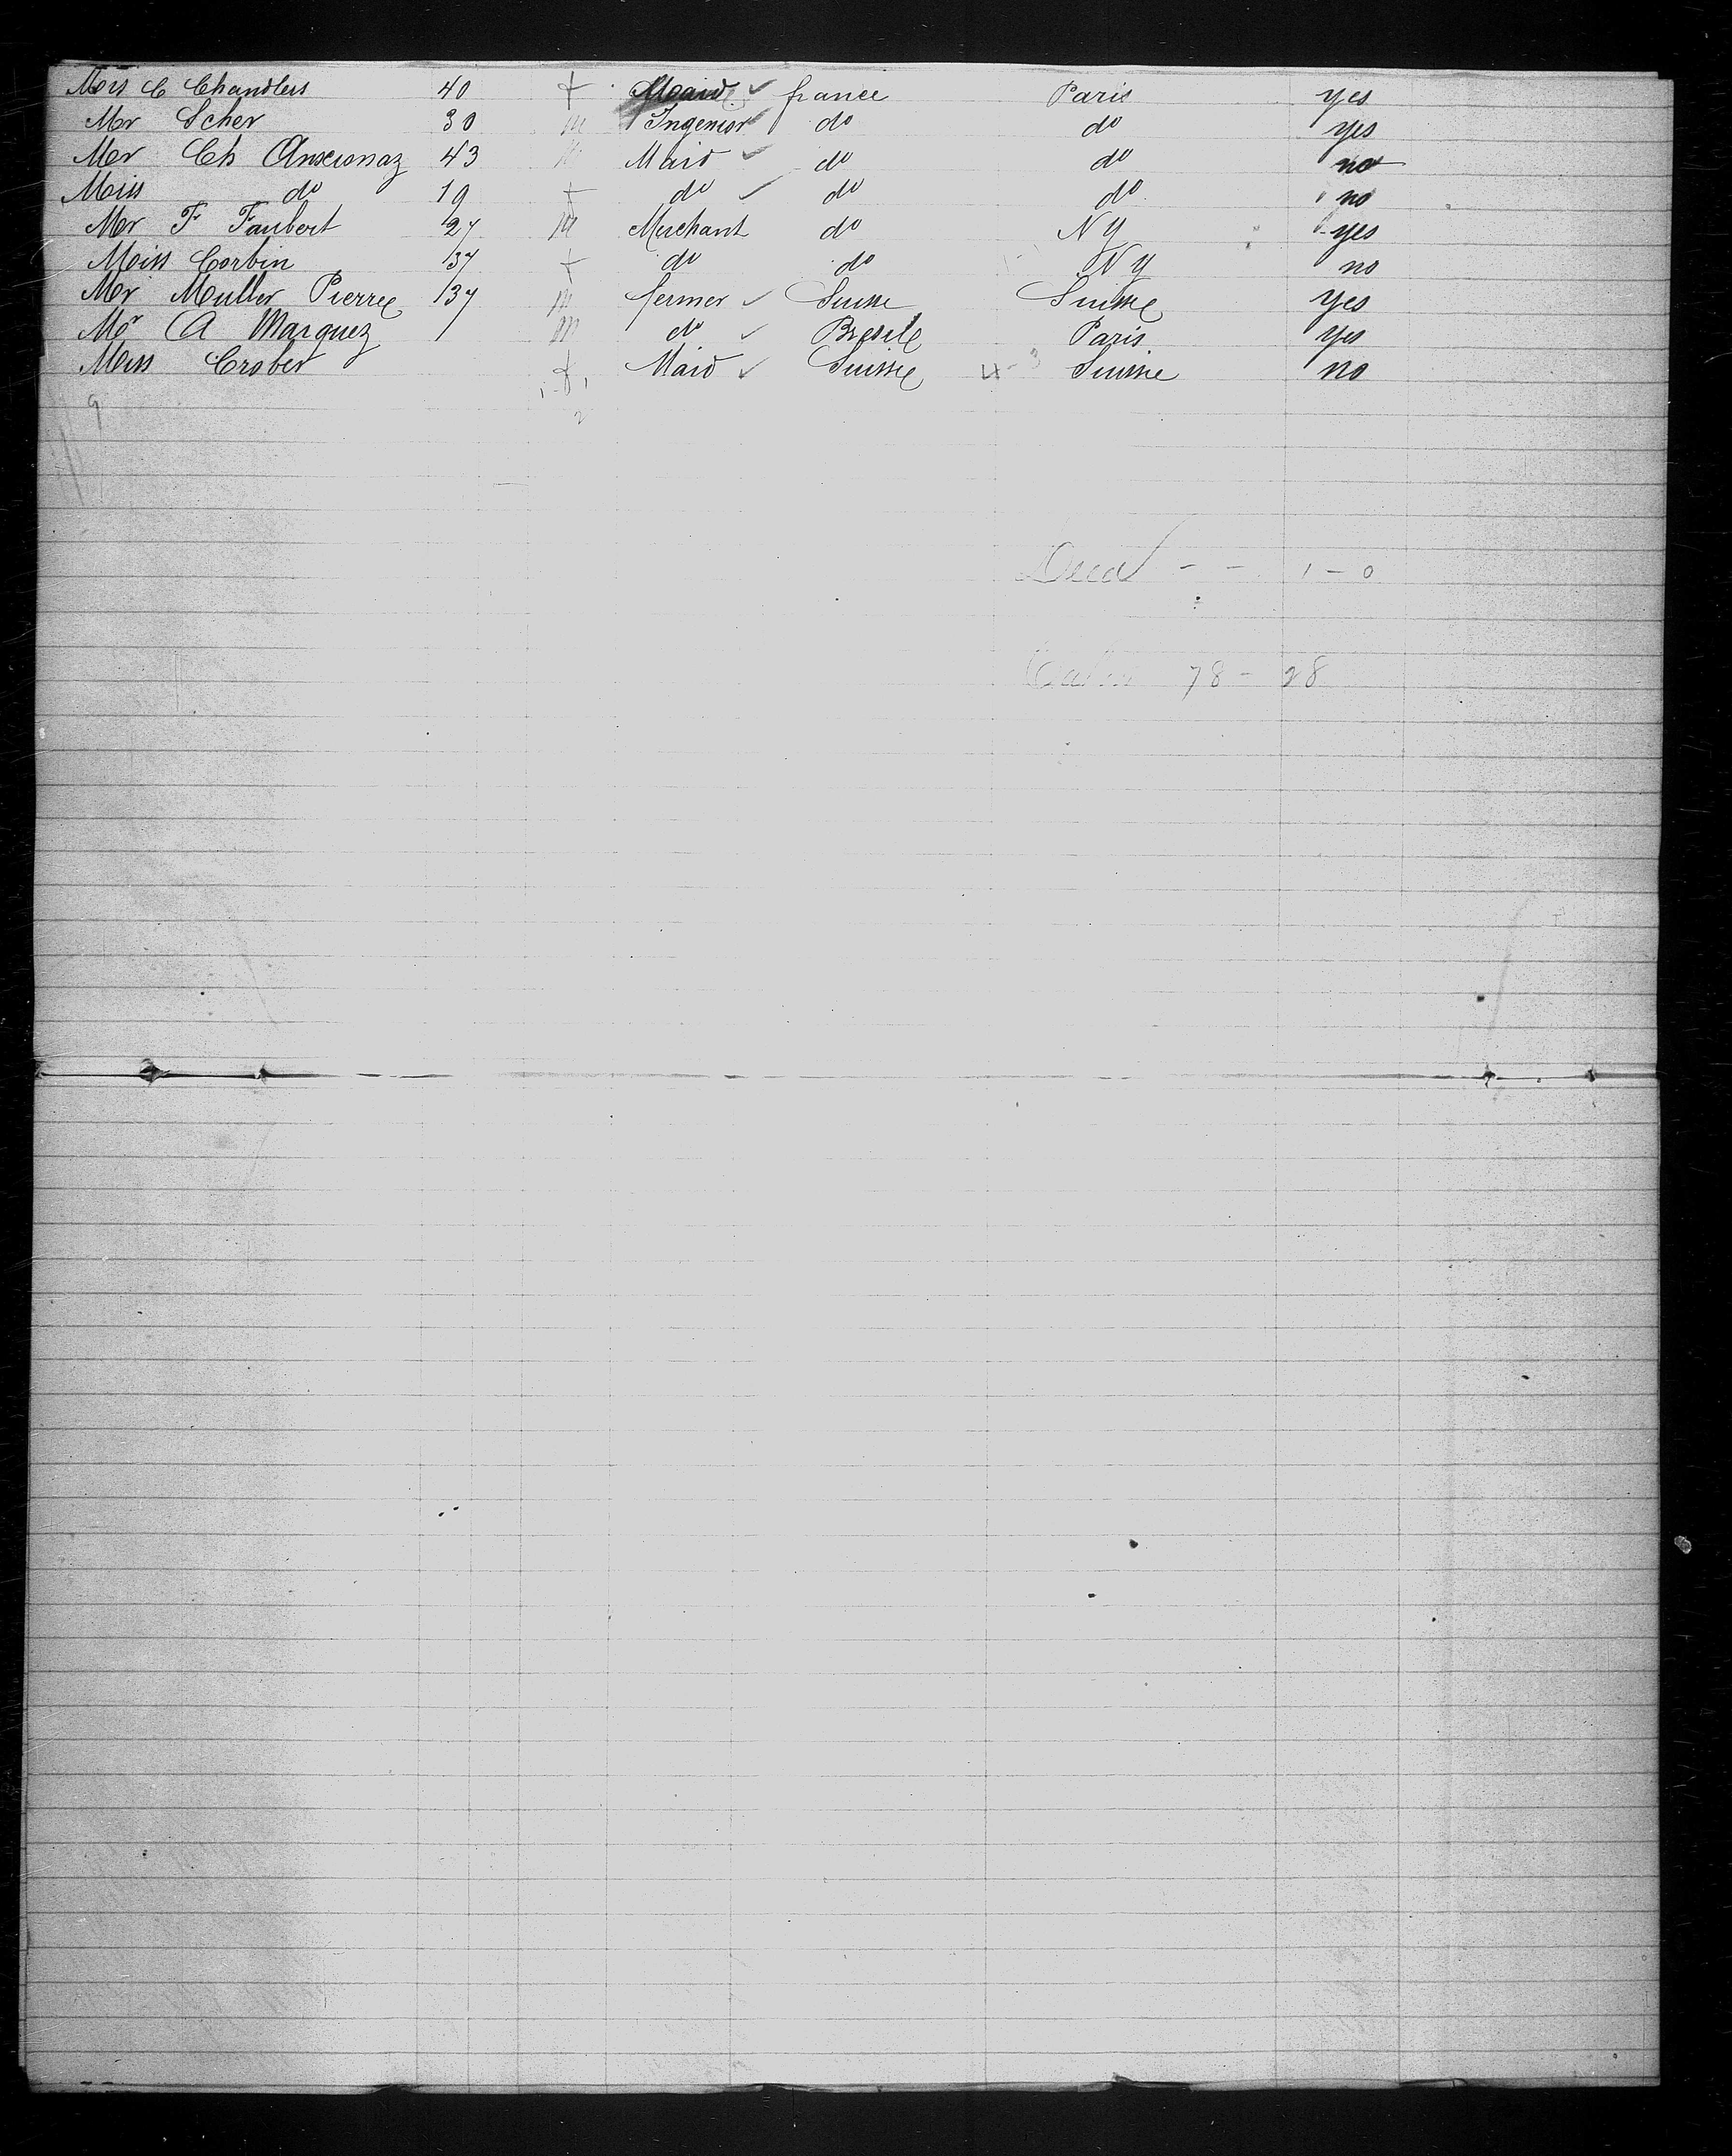 Miss C Chandlers 40 f Maid france Paris yes
Mr Scher 30 m Ingenior do do yes
Mr Ch Anxionaz 43 m Maid do do no
Miss do 19 f do do do no
Mr F Faubert 27 m Merchant do NY yes
Miss Corbin 37 f do do NY no
Mr Muller Pierre 37 m fermer Suisse Suisse yes
Mr A Marquez m do Bresile Paris yes
Miss Crober f Maid Suisse 4 - 3 Suisse no
9
2
Dead - - 1 - 0
Cabin 78 - 28